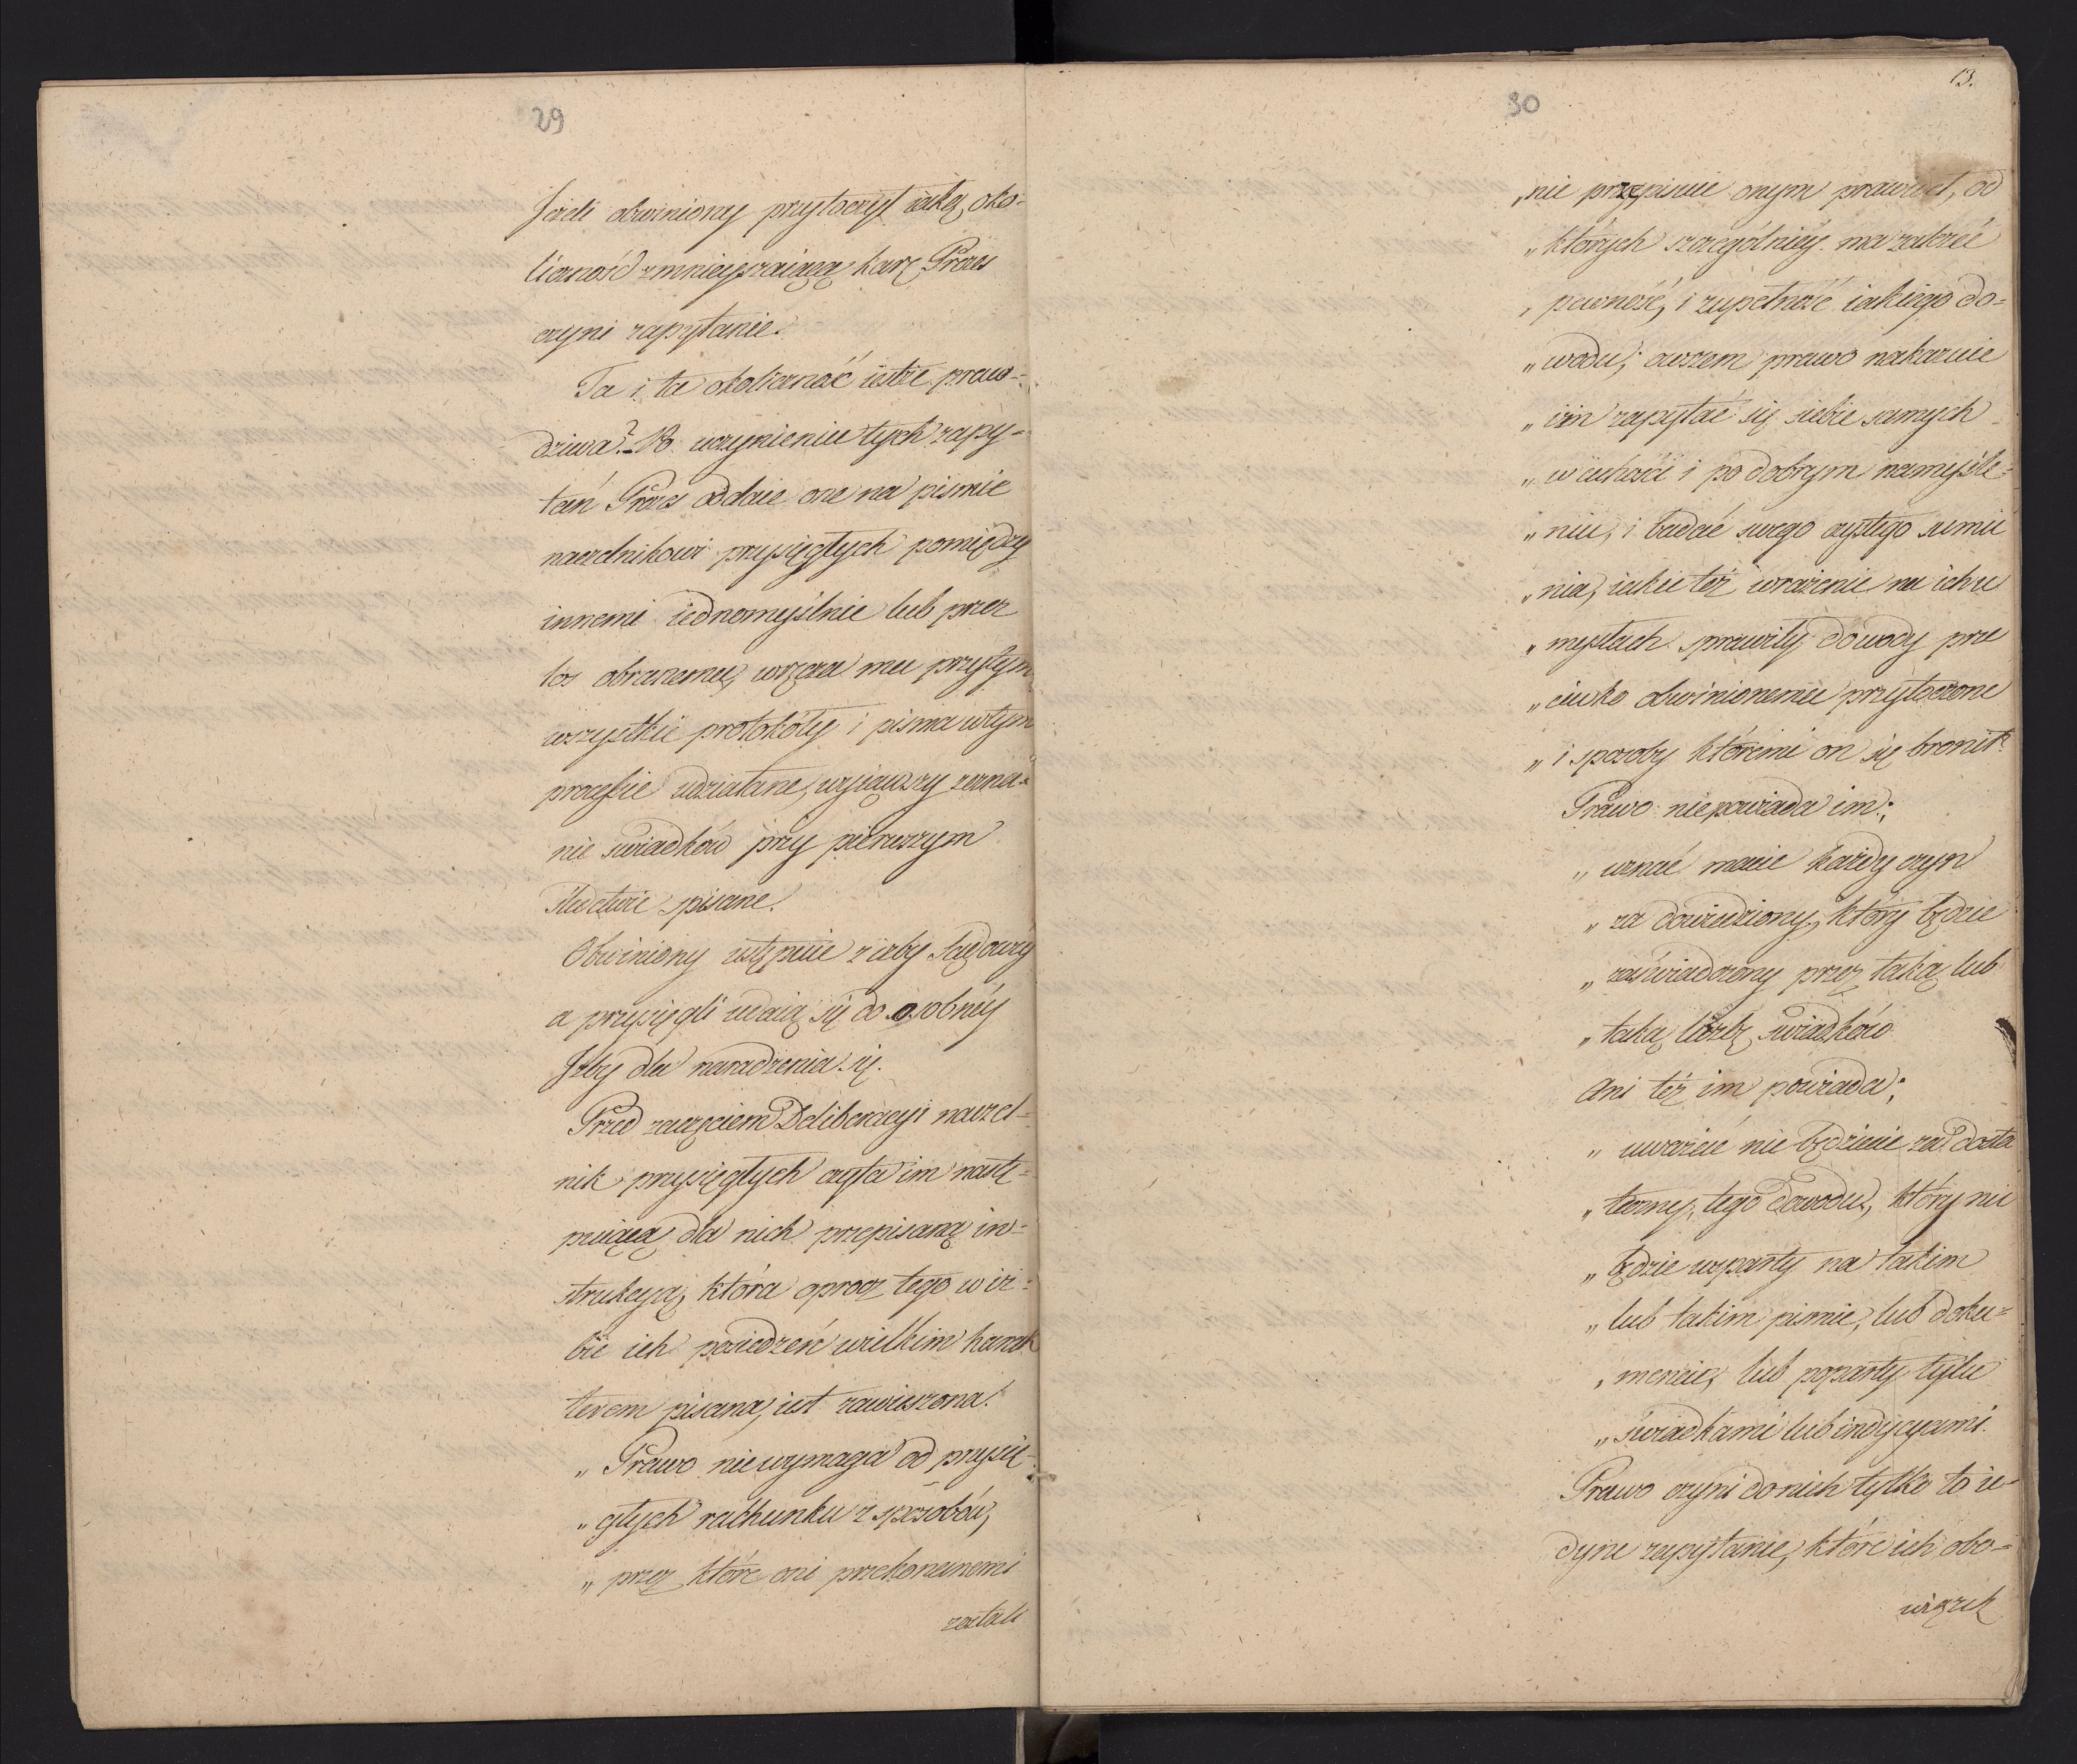 29
Jeżeli obwiniony przytoczył iaką oko-
liczność zmnieyszaiącą karę Prezes
czyni zapytanie.
Ta i ta okoliczność iestże praw-
dziwa? - Po uczynieniu tych zapy-
tań Prezes oddaie one na pismie
naczelnikowi przysięgłych pomiędzy
innemi iednomyślnie lub przez
los obranemu, wręcza mu przytym
wszystkie protokóły i pisma w tym
processie udziałane, wyiąwszy zezna-
nie świadków przy pierwszym
śledztwie spisane.
Obwiniony ustępuie z izby sądowéy
a przysięgli udaią się do osobnéy
Izby dla naradzenia się.
Przed zaczęciem Deliberacyi naczel-
nik przysięgłych czyta im nastę-
puiącą dla nich przepisaną in-
strukcyą, która oprocz tego w iz-
bie ich posiedzeń wielkim karak
terem pisana, iest zawieszona.
„ Prawo nie wymaga od przysię-
„ głych rachunku z sposobów,
„ przez które oni przekonanemi
zostali
13.
30
„ nie przepisuie onym prawideł, od
„ których szczególniéy ma zależeć
„ pewność, i zupełność iakiego do-
„ wodu; owszem prawo nakazuie
„ im zapytać się siebie samych
„ w cichości i po dobrym namyśle-
„ niu, i badać swego czystego sumie
„ nia, iakie też wrażenie na ich u
„ mysłach sprawiły dowody prze
„ ciwko obwinionemu przytoczone
„ i sposoby któremi on się bronił.
Prawo nie powiada im;
„ uznać macie każdy czyn
„ za dowiedziony, który będzie
„ zaświadczony przez taką lub
„ taką liczbę świadków
Ani też im powiada;
„ uważać nie będziecie za dosta
„ teczny tego dowodu, który nie
„ będzie wsparty na takim
„ lub takim pismie, lub doku-
„ mencie, lub poparty tylu
„ świadkami lub indycyami.
Prawo czyni do nich tylko to ie-
dyne zapytanie, które ich obo-
wiązek